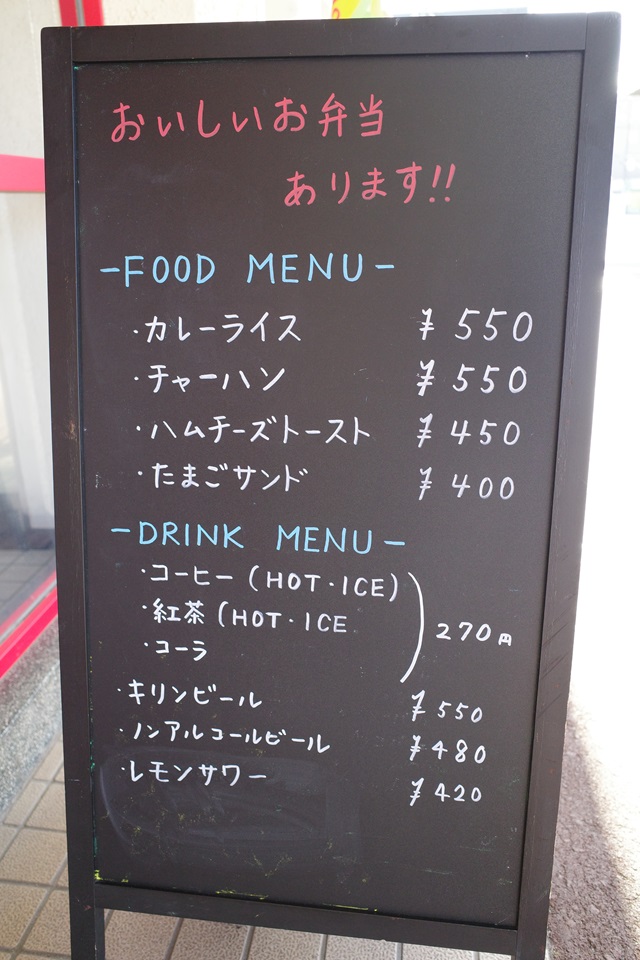 おいしいお弁当
あります!!
-FOOD MENU-
・カレーライス ¥550
・チャーハン ¥550
・ハムチーズトースト ¥450
・たまごサンド ¥400
-DRINK MENU-
・コーヒー(HOT・ICE)
・紅茶(HOT・ICE
・コーラ
270円
・キリンビール ¥550
・ノンアルコールビール ¥480
・レモンサワー ¥420